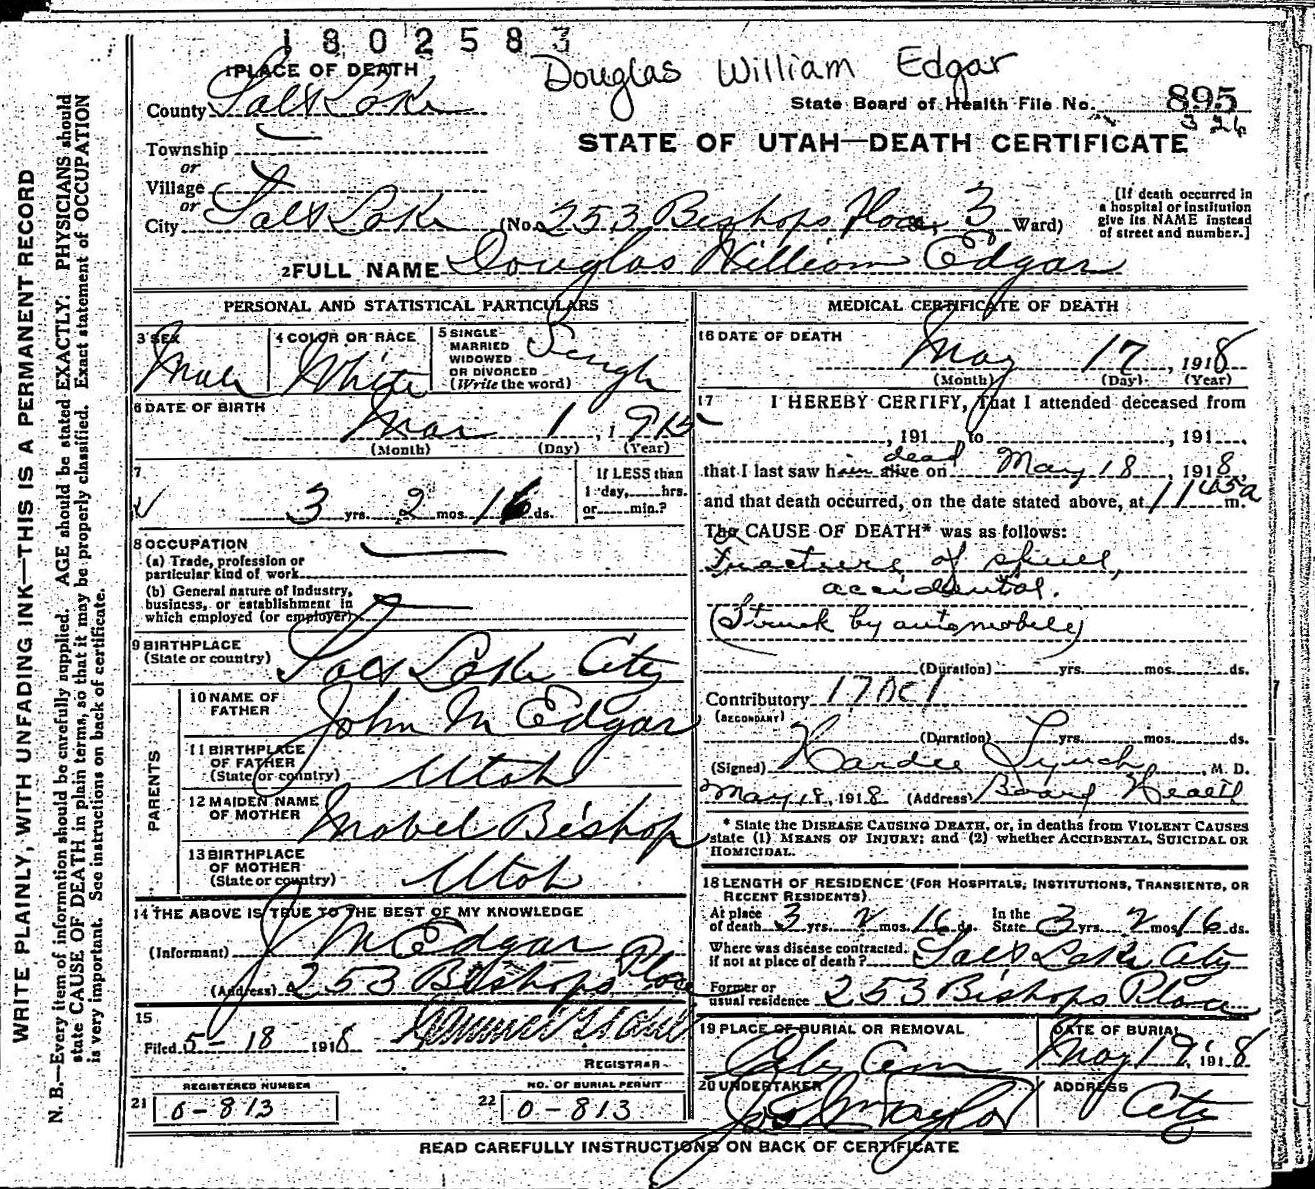 1802583
Douglas William Edgar
1 PLACE OF DEATH
County Salt Lake
State Board of Health File No. 895
326
Township
or
Village
or
STATE OF UTAH—DEATH CERTIFICATE
City Salt Lake (No. 253 Bishops Place, 3 Ward)
[If death occurred in
a hospital or institution
give its NAME instead
of street and number.]
2 FULL NAME Douglas William Edgar
PERSONAL AND STATISTICAL PARTICULARS
3 SEX
Male
4 COLOR OR RACE
White
5 SINGLE
MARRIED
WIDOWED
OR DIVORCED
(Write the word)
Single
6 DATE OF BIRTH
Mar 1, 1915
(Month) (Day) (Year)
7
3 yrs. 2 mos. 16 ds.
If LESS than
1 day, hrs.
or min.?
8 OCCUPATION
(a) Trade, profession or
particular kind of work
(b) General nature of Industry,
business, or establishment in
which employed (or employer)
9 BIRTHPLACE
(State or country) Salt Lake City
PARENTS
10 NAME OF
FATHER John M Edgar
11 BIRTHPLACE
OF FATHER
(State or country) Utah
12 MAIDEN NAME
OF MOTHER Mabel Bishop
13 BIRTHPLACE
OF MOTHER
(State or country) Utah
14 THE ABOVE IS TRUE TO THE BEST OF MY KNOWLEDGE
(Informant) J M Edgar
(Address) 253 Bishops Place
15
Filed 5-18 1918
REGISTRAR
REGISTERED NUMBER
21 0-813
NO. OF BURIAL PERMIT
22 0-813
MEDICAL CERTIFICATE OF DEATH
16 DATE OF DEATH
May 17, 1918
(Month) (Day) (Year)
17 I HEREBY CERTIFY, That I attended deceased from
, 191 , to , 191 ,
dead
that I last saw him alive on May 18, 1918,
and that death occurred, on the date stated above, at 1145a m.
The CAUSE OF DEATH* was as follows:
Fracture of skull,
accidental.
(Struck by automobile)
(Duration) yrs. mos. ds.
Contributory 170c1
(SECONDARY)
(Duration) yrs. mos. ds.
(Signed) Hardee Lynch, M. D.
May 18, 1918 (Address) Board Health
* State the DISEASE CAUSING DEATH, or, in deaths from VIOLENT CAUSES
state (1) MEANS OF INJURY; and (2) whether ACCIDENTAL, SUICIDAL OR
HOMICIDAL.
18 LENGTH OF RESIDENCE (FOR HOSPITALS, INSTITUTIONS, TRANSIENTS, OR
RECENT RESIDENTS).
At place In the
of death 3 yrs. 2 mos. 16 ds. State 3 yrs. 2 mos. 16 ds.
Where was disease contracted,
if not at place of death? Salt Lake City
Former or
usual residence 253 Bishops Place
19 PLACE OF BURIAL OR REMOVAL
City Cem
DATE OF BURIAL
May 19, 1918
20 UNDERTAKER
Jos Wm Taylor
ADDRESS
City
READ CAREFULLY INSTRUCTIONS ON BACK OF CERTIFICATE
WRITE PLAINLY, WITH UNFADING INK—THIS IS A PERMANENT RECORD
N. B.—Every item of information should be carefully supplied. AGE should be stated EXACTLY. PHYSICIANS should
state CAUSE OF DEATH in plain terms, so that it may be properly classified. Exact statement of OCCUPATION
is very important. See instructions on back of certificate.